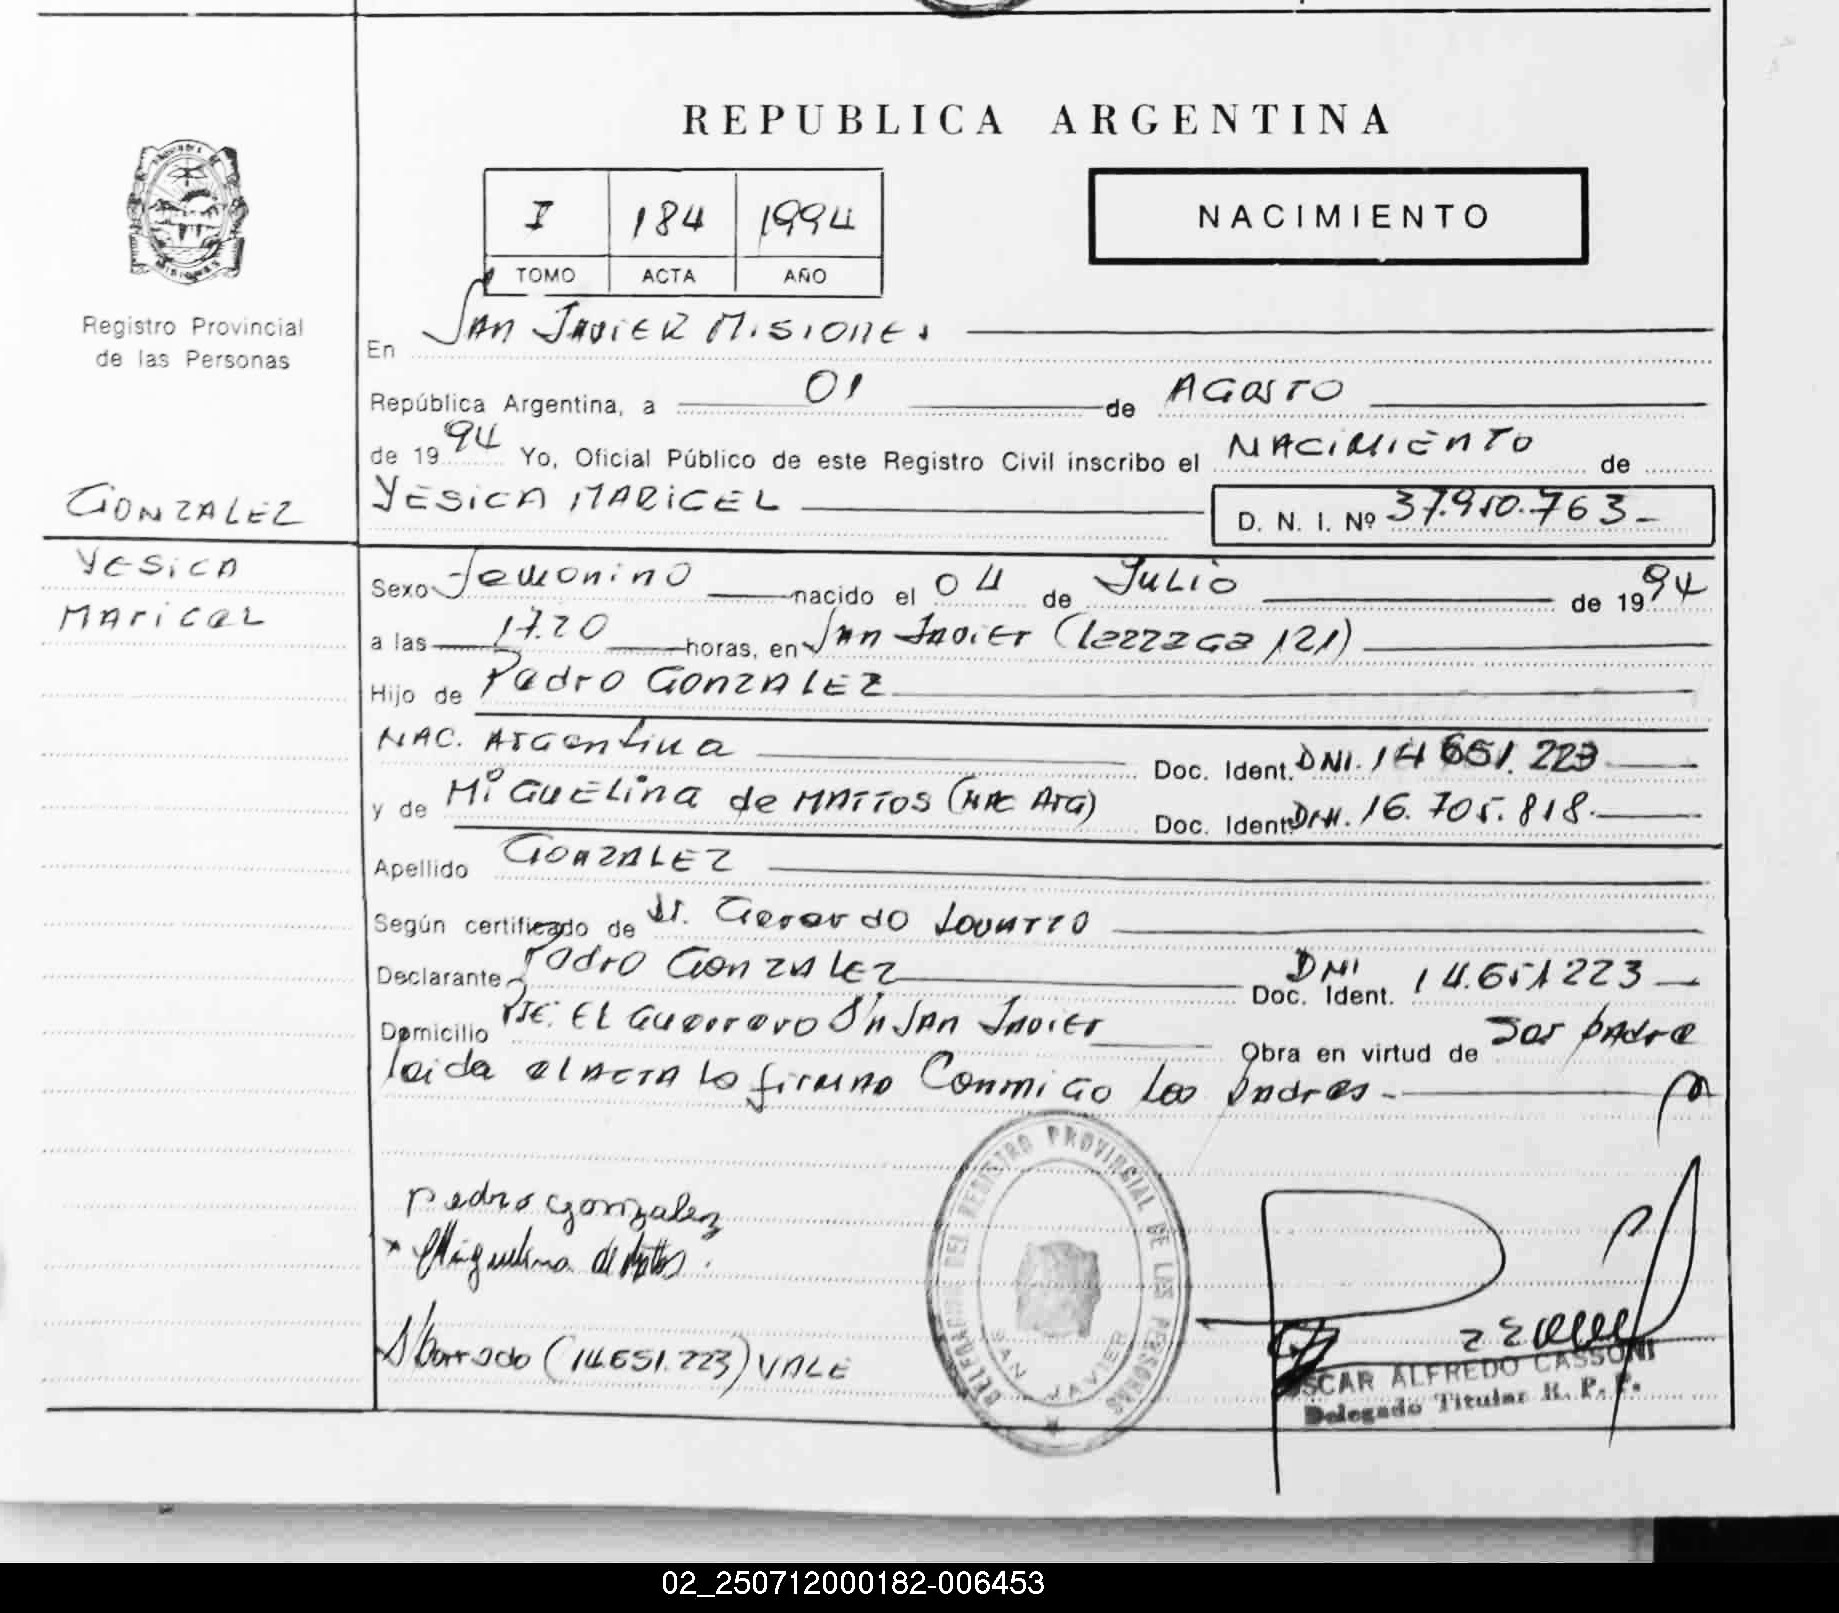 REPUBLICA ARGENTINA
I 184 1994
TOMO ACTA AÑO
NACIMIENTO
Registro Provincial
de las Personas
En San Javier Misiones
República Argentina, a 01 de Agosto
de 1994 Yo, Oficial Público de este Registro Civil inscribo el NACIMIENTO de
YESICA MARICEL D. N. I. Nº 37.950.763-
GONZALEZ
YESICA
MARICEL
Sexo Femenino nacido el 04 de Julio de 1994
a las 17.20 horas, en San Javier (121)
Hijo de Pedro GONZALEZ
NAC. Argentina Doc. Ident. DNI. 14 651. 223
y de MIGUELINA de MATTOS (NAC ARG) Doc. Ident. DNI. 16. 705. 818.
Apellido GONZALEZ
Según certificado de Dr. Gerardo
Declarante Pedro GONZALEZ DNI Doc. Ident. 14.651 223
Domicilio Pje. El Guerrero S/n San Javier Obra en virtud de Ser padre
leida el ACTA lo firman Conmigo los padres-
Pedro Gonzalez
x Miguelina de Mattos.
S/borrado (14.651.223) VALE
DELEGACION DEL REGISTRO PROVINCIAL DE LAS PERSONAS
SAN JAVIER
OSCAR ALFREDO CASSONI
Delegado Titular R. P. P.
02_250712000182-006453